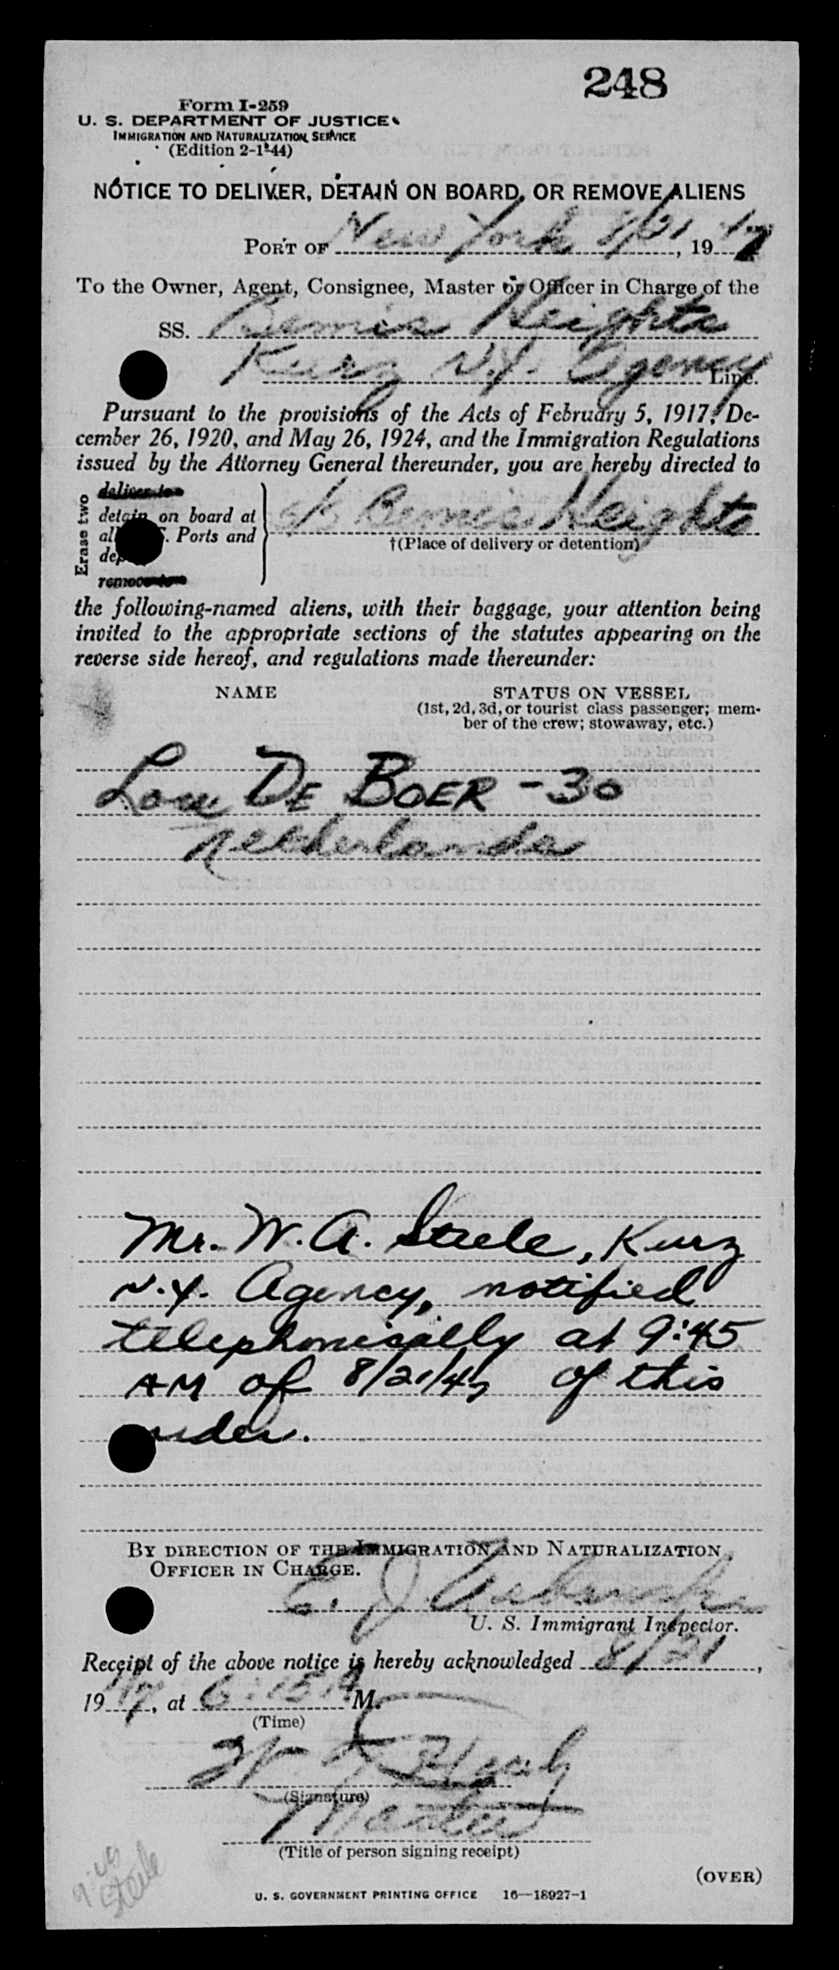 248
Form I-259
U. S. DEPARTMENT OF JUSTICE
IMMIGRATION AND NATURALIZATION SERVICE
(Edition 2-1-44)
NOTICE TO DELIVER, DETAIN ON BOARD, OR REMOVE ALIENS
PORT OF New York 8/21, 1947
To the Owner, Agent, Consignee, Master or Officer in Charge of the
SS. Bemis Heights
Kurz N.Y. Agency Line.
Pursuant to the provisions of the Acts of February 5, 1917, De-
cember 26, 1920, and May 26, 1924, and the Immigration Regulations
issued by the Attorney General thereunder, you are hereby directed to
Erase two
deliver to
detain on board at
all U. S. Ports and
remove to
s/s Bemis Heights
†(Place of delivery or detention)
the following-named aliens, with their baggage, your attention being
invited to the appropriate sections of the statutes appearing on the
reverse side hereof, and regulations made thereunder:
NAME STATUS ON VESSEL
(1st, 2d, 3d, or tourist class passenger; mem-
ber of the crew; stowaway, etc.)
Lou DE BOER - 30
Netherlands
Mr. W. A. Steele, Kurz
N.Y. Agency, notified
telephonically at 9:45
AM of 8/21/47 of this
order.
BY DIRECTION OF THE IMMIGRATION AND NATURALIZATION
OFFICER IN CHARGE.
E. J.
U. S. Immigrant Inspector.
Receipt of the above notice is hereby acknowledged 8/21,
1947, at 6:15 P M.
(Time)
(Signature)
Master
(Title of person signing receipt)
9:45
Steele
(OVER)
U. S. GOVERNMENT PRINTING OFFICE 16—18927-1